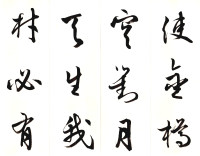 使金樽
空對月
天生我
材必有